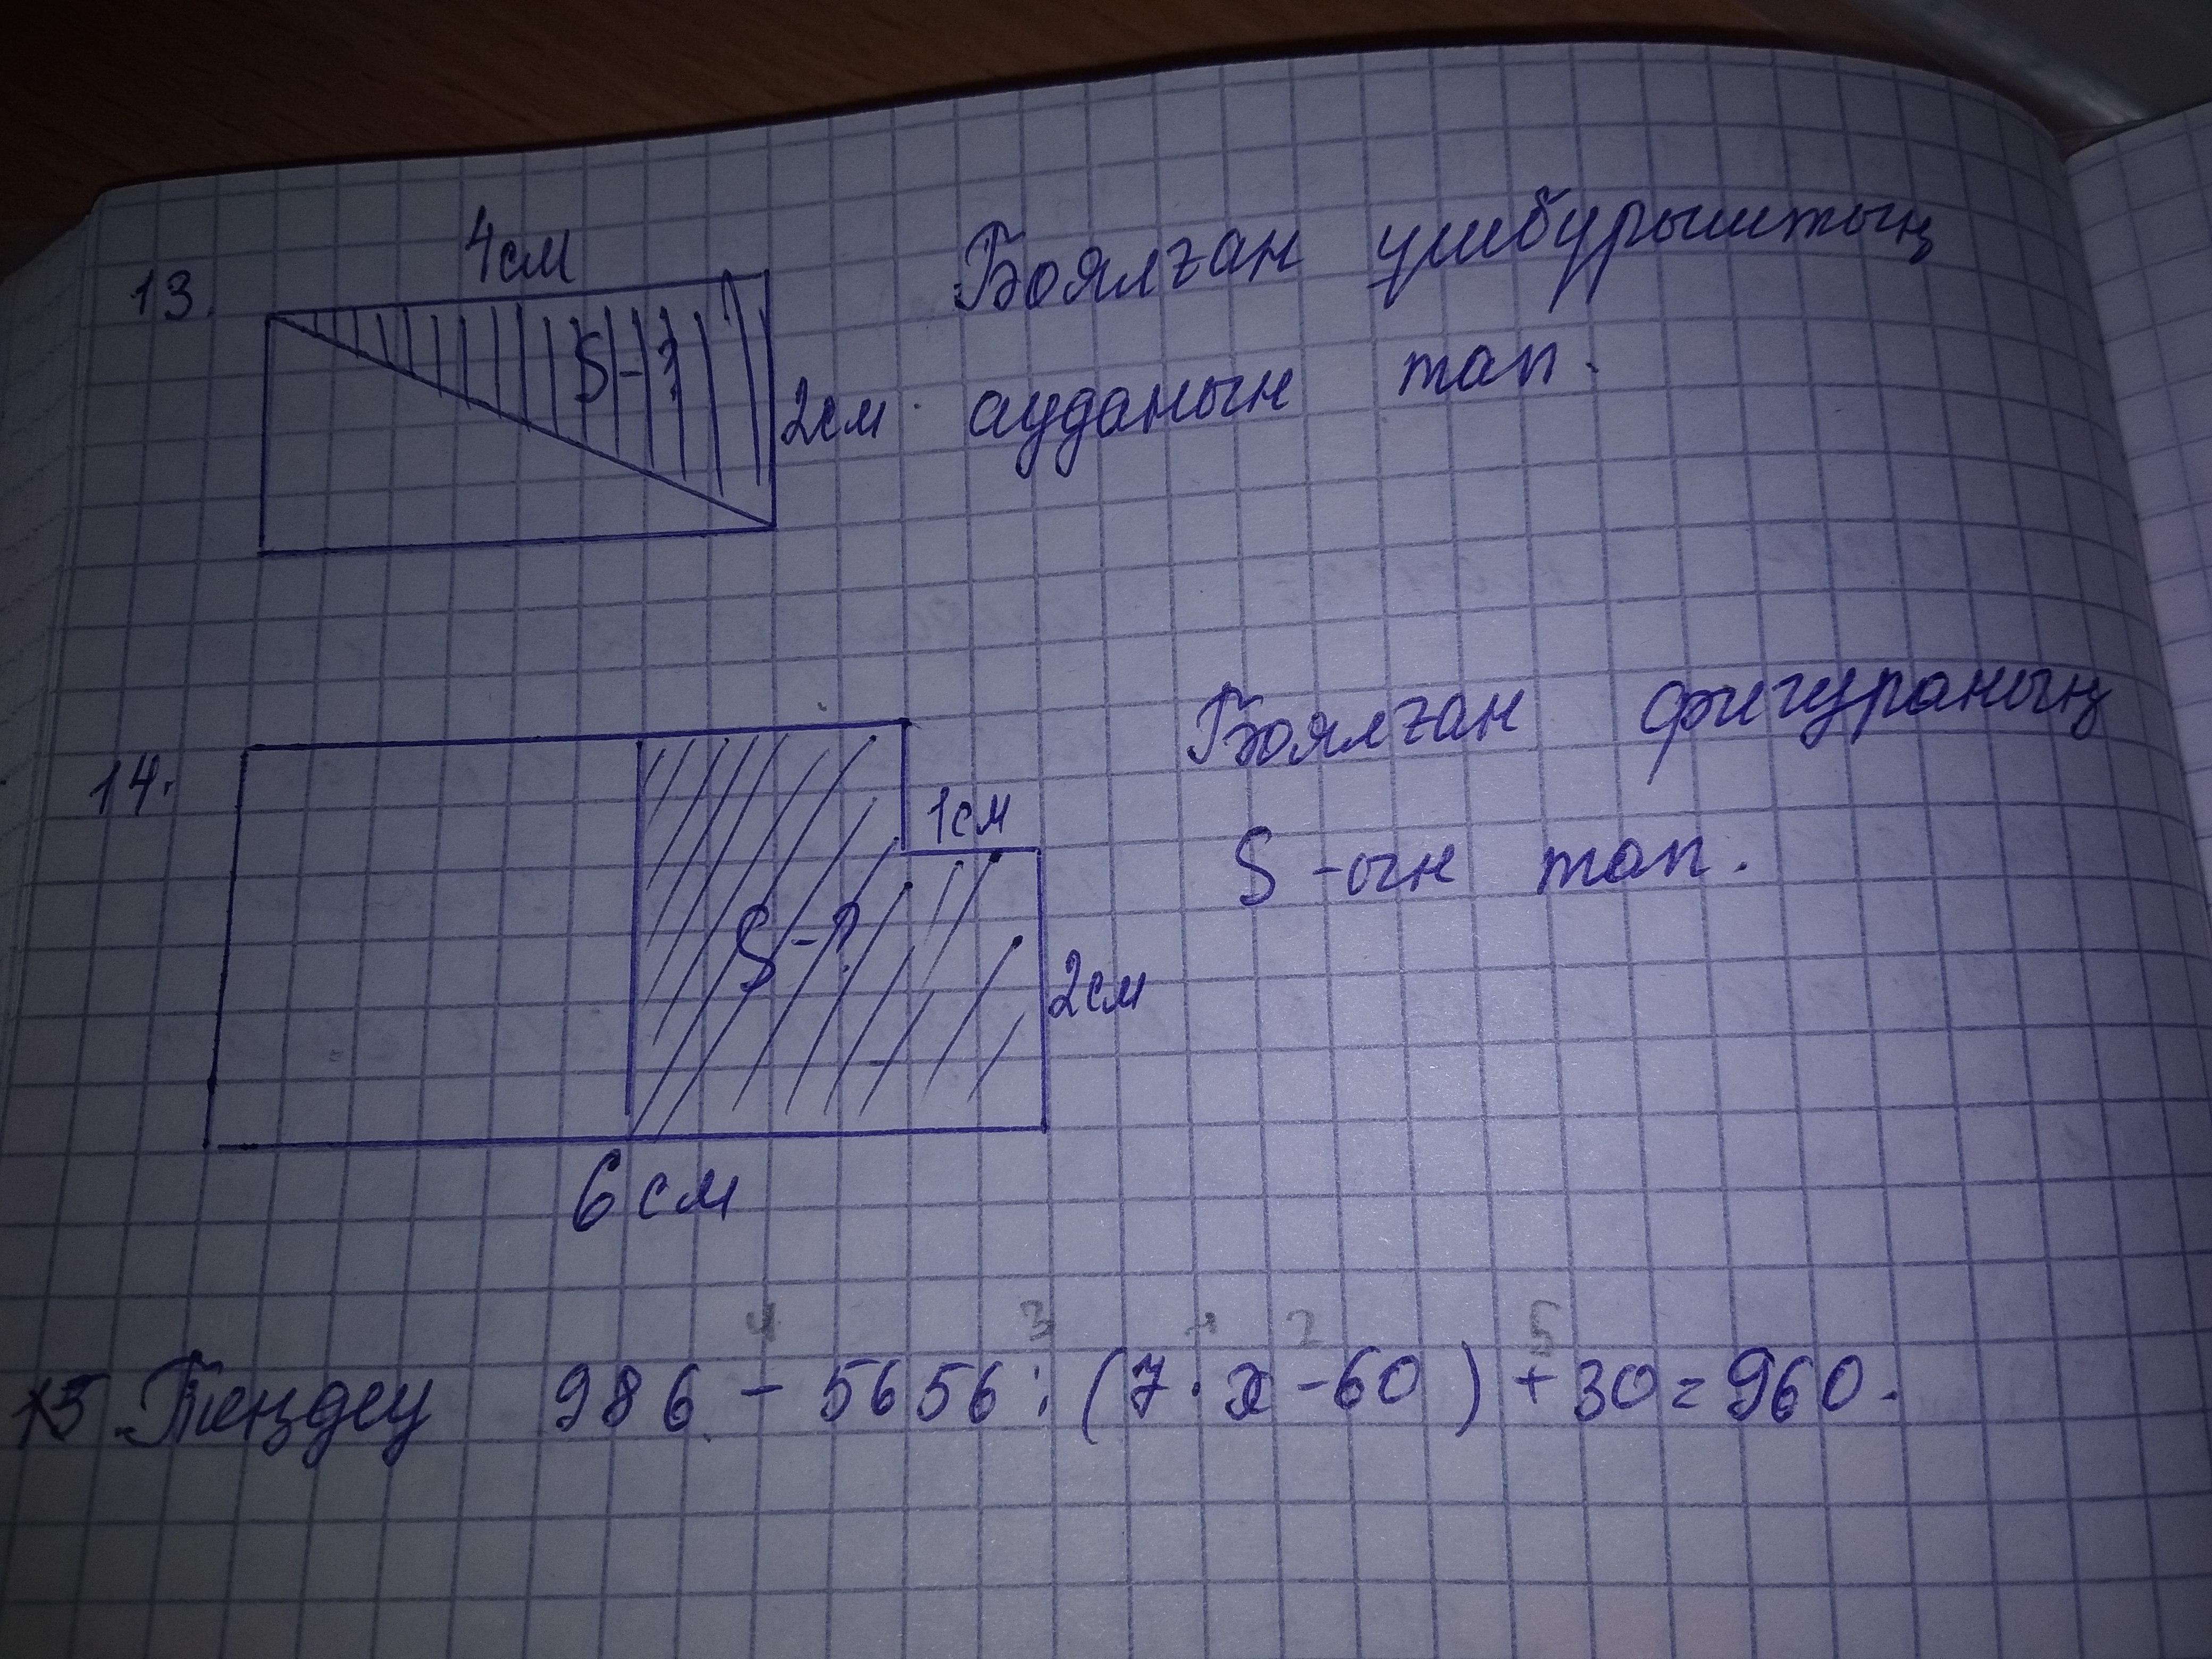 13.
4см
S-?
2см
Боялған үшбұрыштың
ауданын тап.
14.
1см
S-?
2см
6 см
Боялған фигураның
S-ын тап.
4 3 1 2 5
15. Теңдеу 986 - 5656 : (7 · x - 60) + 30 = 960.